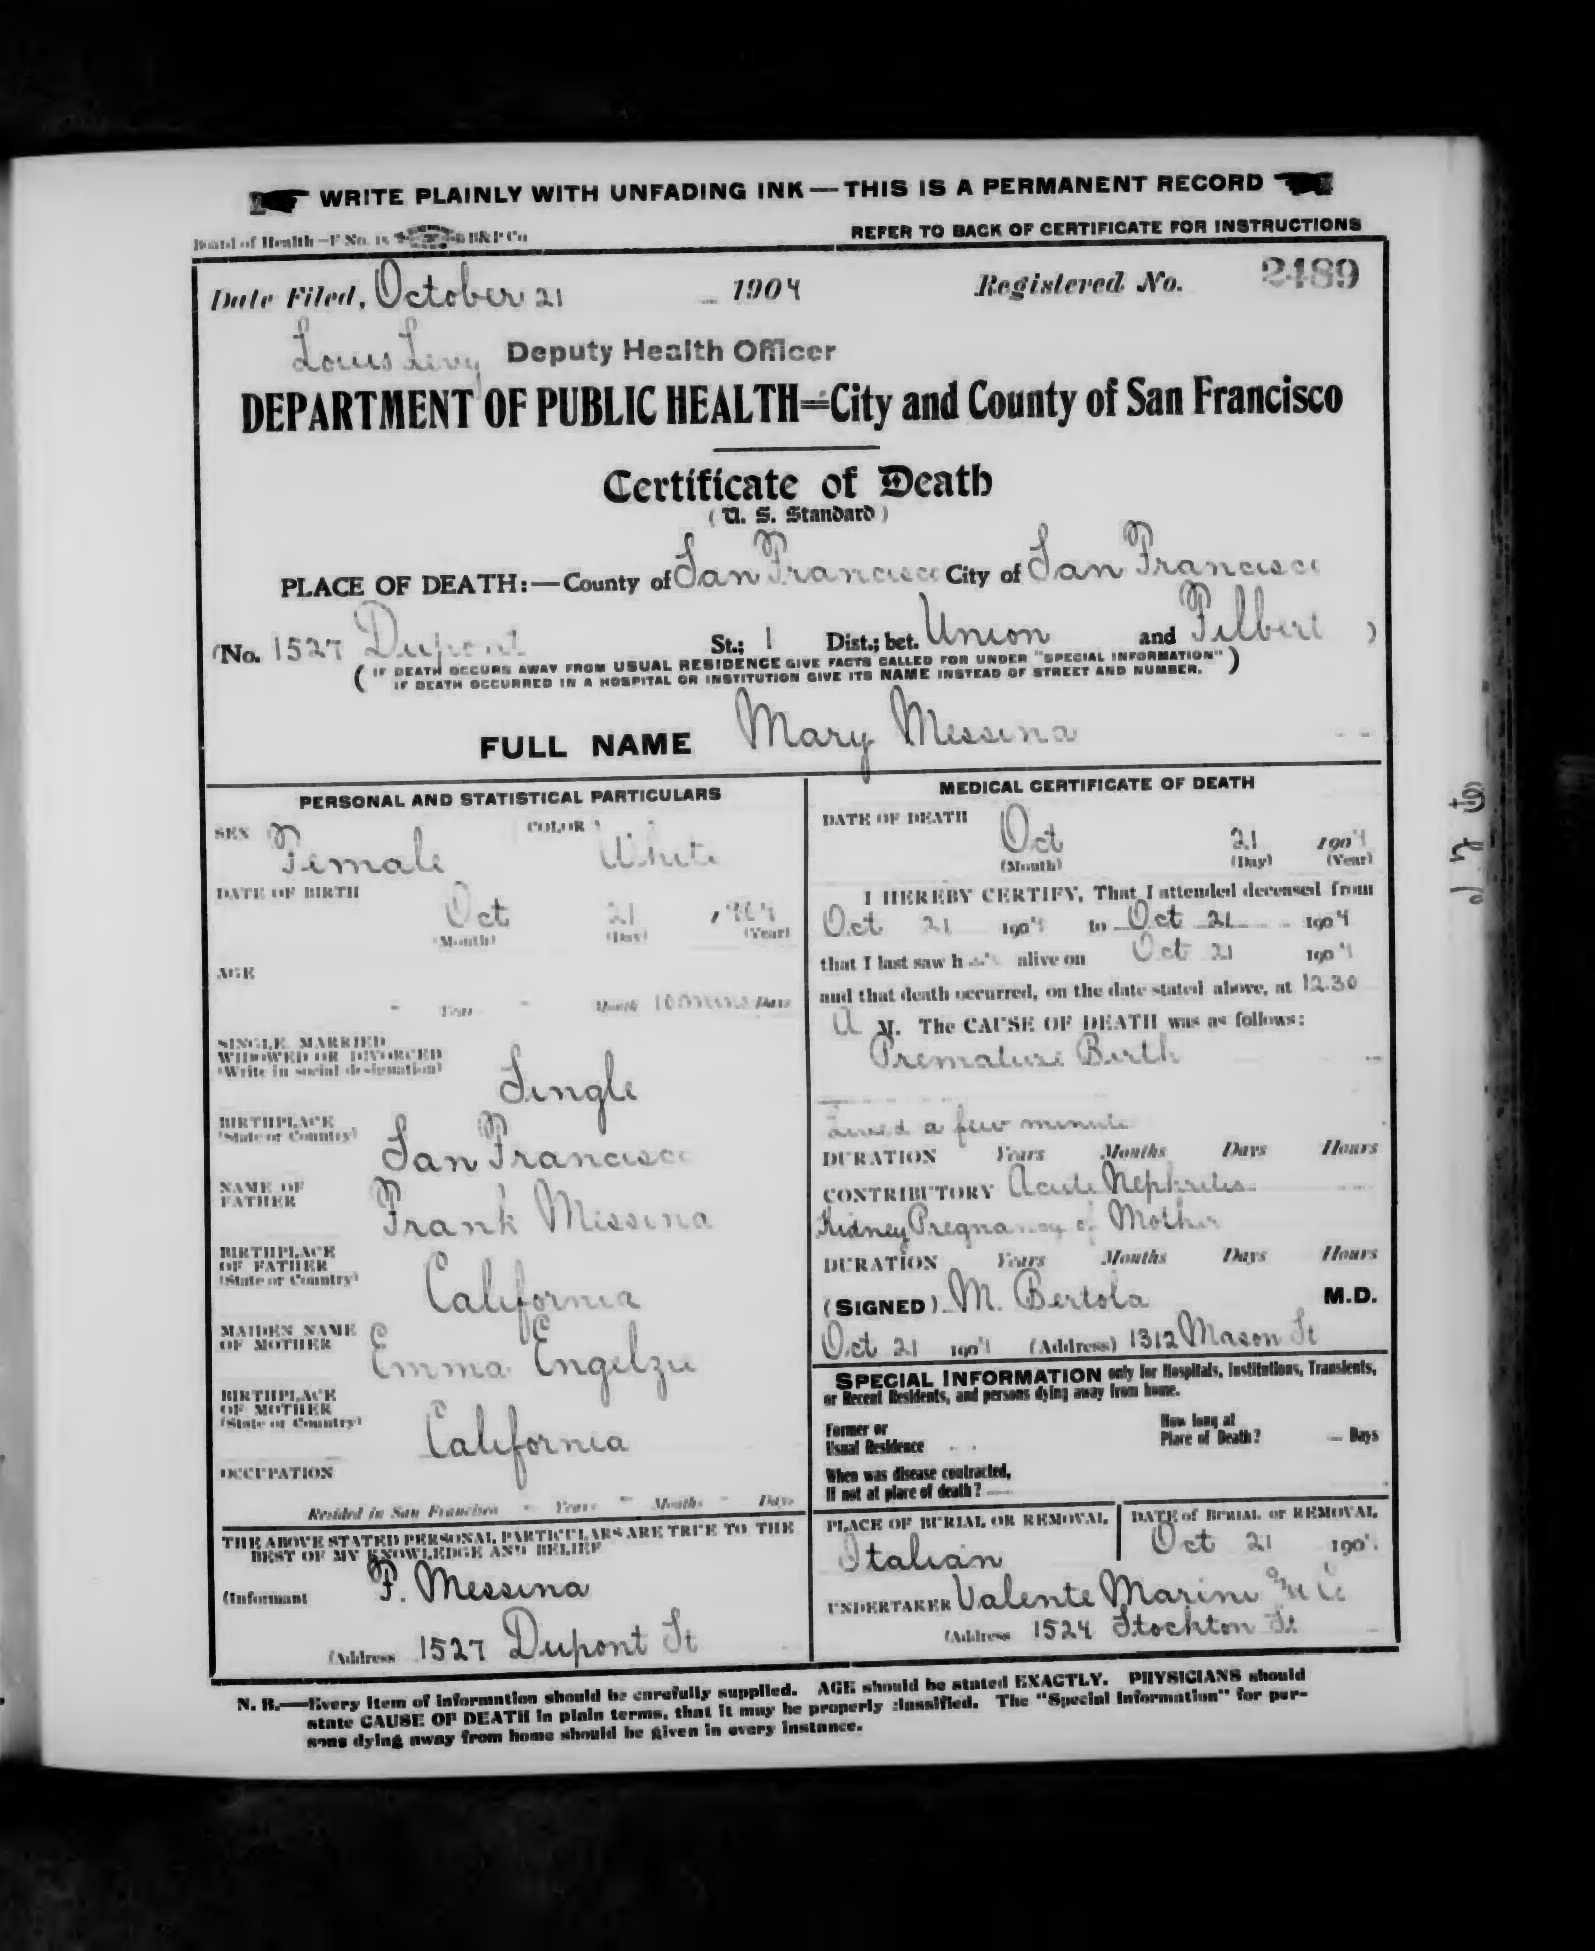 WRITE PLAINLY WITH UNFADING INK — THIS IS A PERMANENT RECORD
Board of Health—F No. 15 B&P Co
REFER TO BACK OF CERTIFICATE FOR INSTRUCTIONS
Date Filed, October 21 1904 Registered No. 2489
Louis Levy Deputy Health Officer
DEPARTMENT OF PUBLIC HEALTH=City and County of San Francisco
Certificate of Death
(U. S. Standard)
PLACE OF DEATH:—County of San Francisco City of San Francisco
(No. 1527 Dupont St.; 1 Dist.; bet. Union and Filbert )
( IF DEATH OCCURS AWAY FROM USUAL RESIDENCE GIVE FACTS CALLED FOR UNDER "SPECIAL INFORMATION" )
IF DEATH OCCURRED IN A HOSPITAL OR INSTITUTION GIVE ITS NAME INSTEAD OF STREET AND NUMBER.
FULL NAME Mary Messina
PERSONAL AND STATISTICAL PARTICULARS
SEX Female COLOR White
DATE OF BIRTH Oct 21 1904
(Month) (Day) (Year)
AGE
- Years - Month 10 mins Days
SINGLE, MARRIED,
WIDOWED OR DIVORCED
(Write in social designation) Single
BIRTHPLACE
(State or Country) San Francisco
NAME OF
FATHER Frank Messina
BIRTHPLACE
OF FATHER
(State or Country) California
MAIDEN NAME
OF MOTHER Emma Engelzu
BIRTHPLACE
OF MOTHER
(State or Country) California
OCCUPATION
Resided in San Francisco - Years - Months - Days
THE ABOVE STATED PERSONAL PARTICULARS ARE TRUE TO THE
BEST OF MY KNOWLEDGE AND BELIEF
(Informant F. Messina
(Address 1527 Dupont St
MEDICAL CERTIFICATE OF DEATH
DATE OF DEATH Oct 21 1904
(Month) (Day) (Year)
I HEREBY CERTIFY, That I attended deceased from
Oct 21 1904 to Oct 21 1904
that I last saw h alive on Oct 21 1904
and that death occurred, on the date stated above, at 12.30
A M. The CAUSE OF DEATH was as follows:
Premature Birth
Lived a few minute
DURATION Years Months Days Hours
CONTRIBUTORY Acute Nephritis
Kidney Pregnancy of Mother
DURATION Years Months Days Hours
(SIGNED) M. Bertola M.D.
Oct 21 1904 (Address) 1312 Mason St
SPECIAL INFORMATION only for Hospitals, Institutions, Transients,
or Recent Residents, and persons dying away from home.
Former or
Usual Residence
How long at
Place of Death? — Days
When was disease contracted,
If not at place of death? —
PLACE OF BURIAL OR REMOVAL
Italian
DATE of BURIAL or REMOVAL
Oct 21 190
UNDERTAKER Valente Marini & Co
(Address 1524 Stockton St
N. B.—Every item of information should be carefully supplied. AGE should be stated EXACTLY. PHYSICIANS should
state CAUSE OF DEATH in plain terms, that it may be properly classified. The "Special Information" for per-
sons dying away from home should be given in every instance.